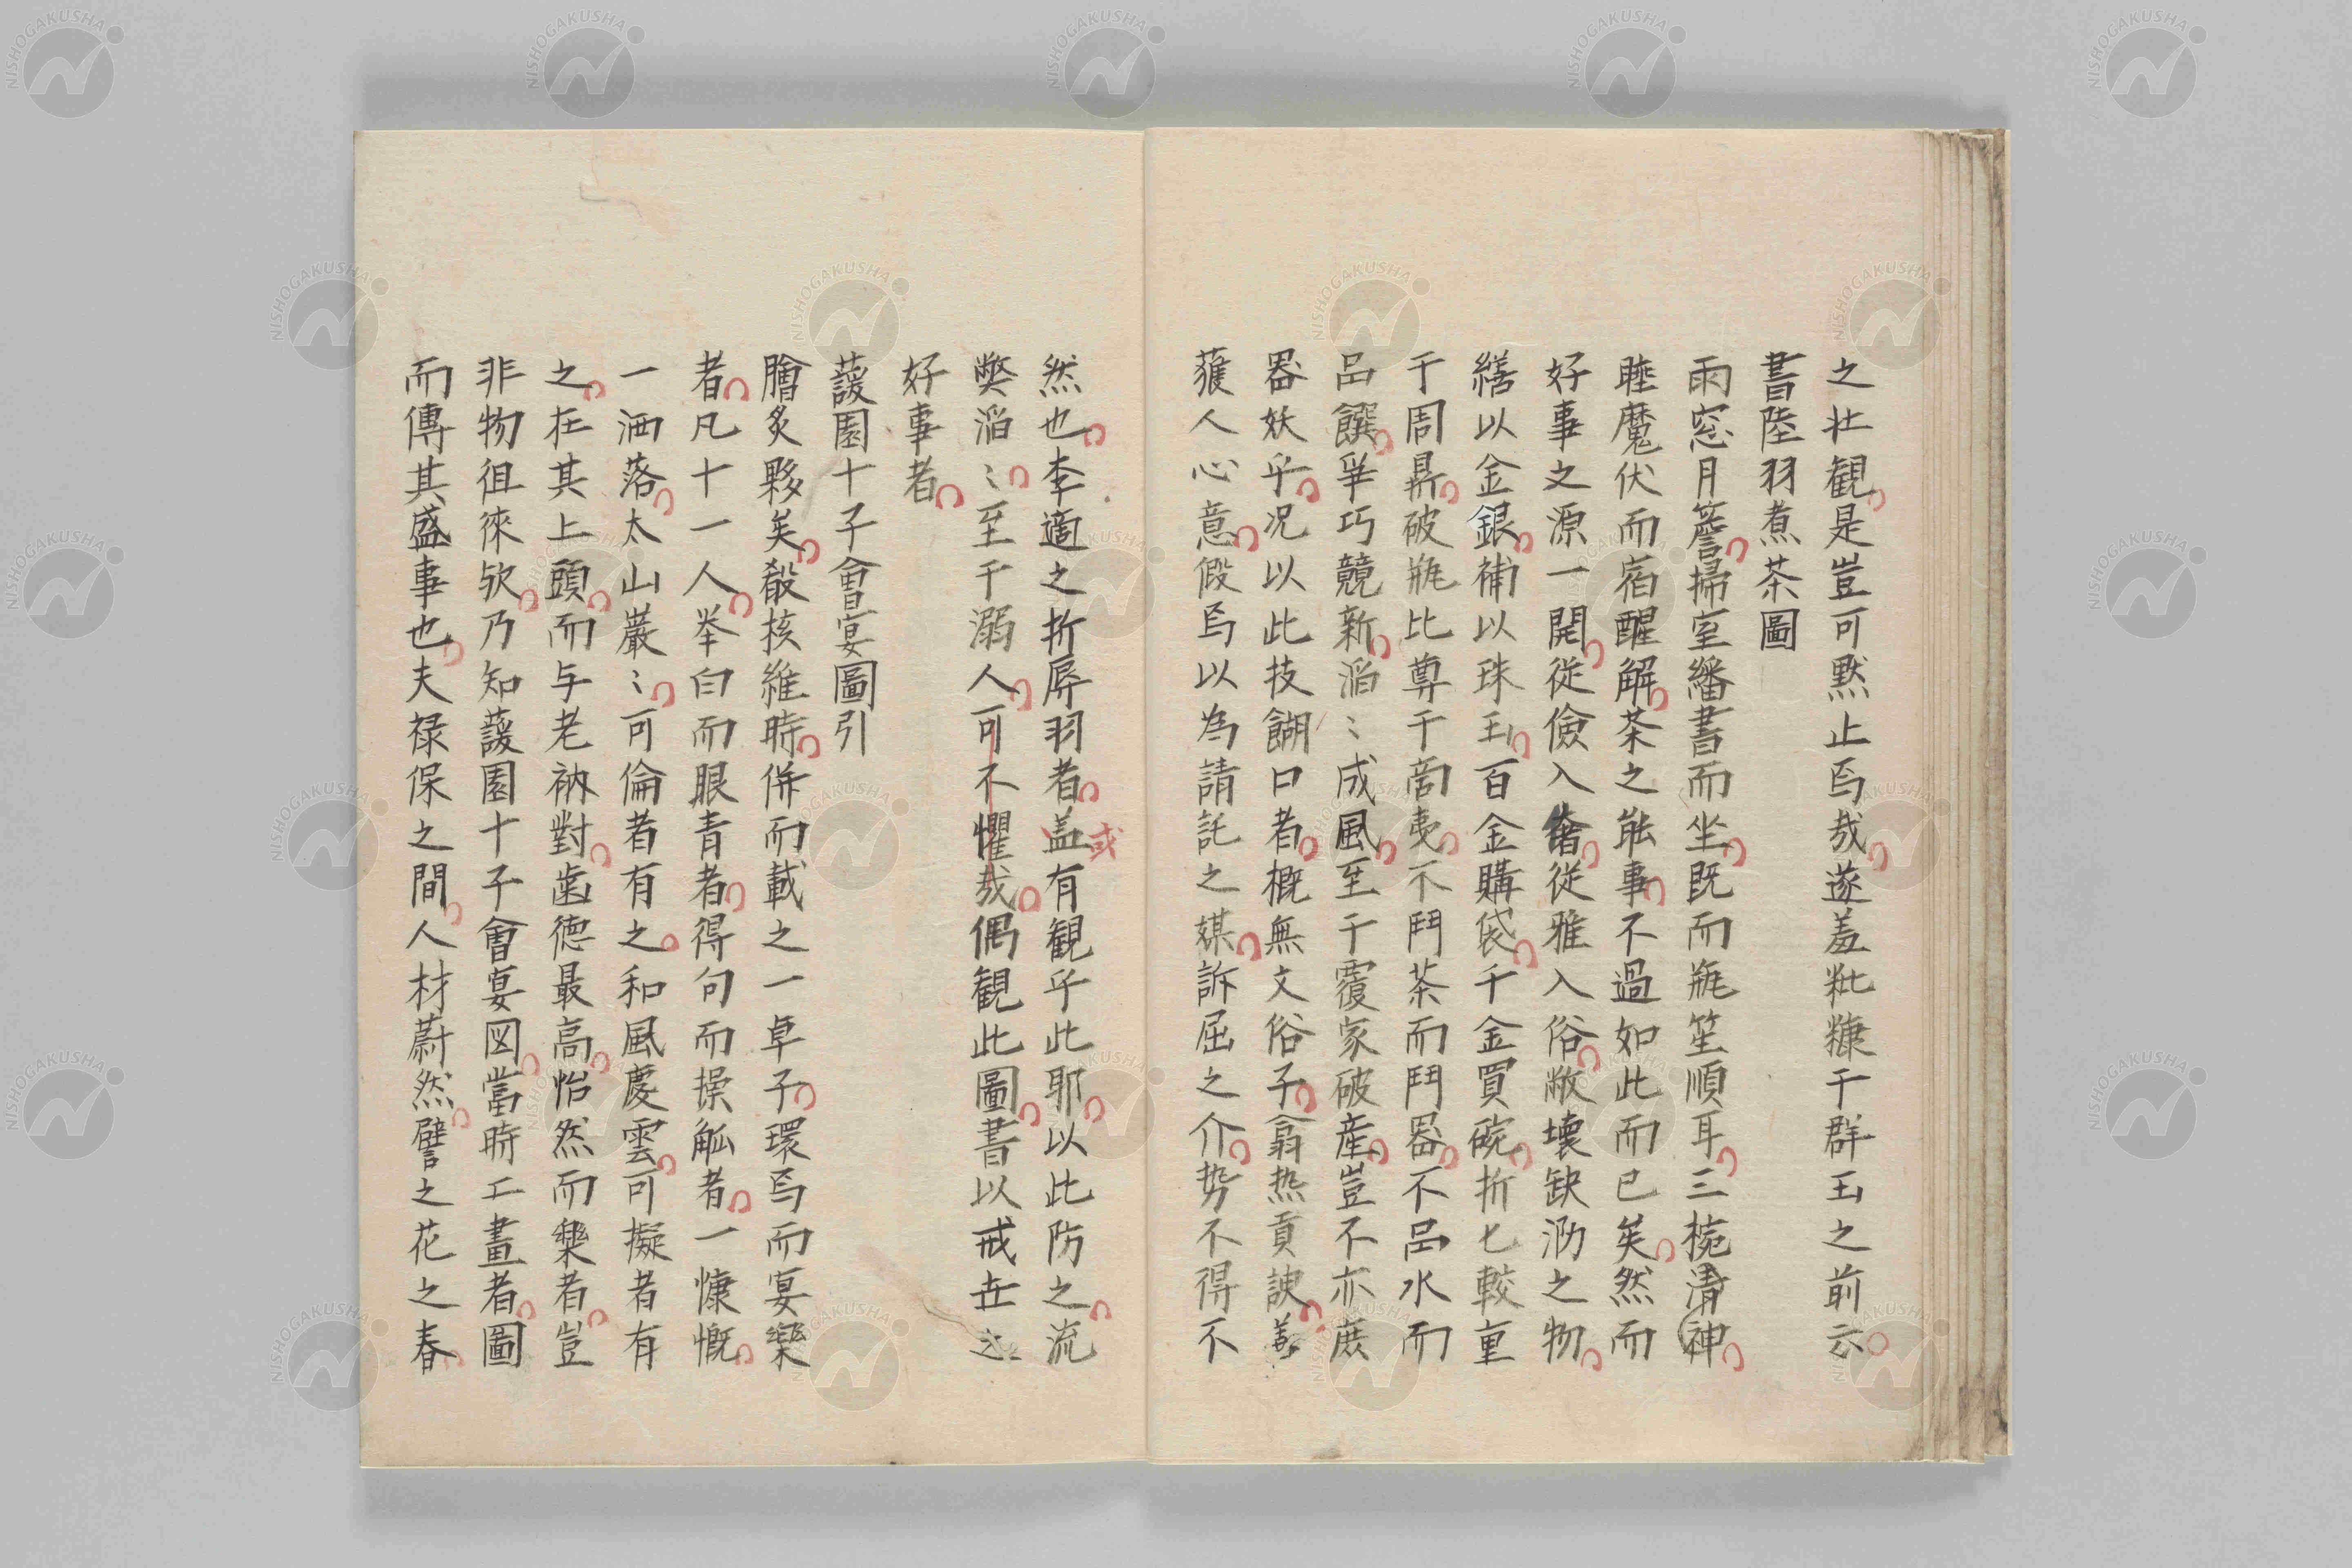 之壮観是豈可黙止焉哉遂羞粃糠于群玉之前云
書陸羽煮茶圖
雨窓月簷掃室繙書而坐既而瓶笙順耳三椀清神
睡魔伏而宿醒解茶之能事不過如此而已矣然而
好事之源一開従倹入奢従雅入俗敝壊缺泐之物
繕以金銀補以珠玉百金購袋千金買碗折匕較重
于周鼎破瓶比尊于商夷不鬥茶而鬥器不品水而
品饌争巧競新滔〻成風至于覆家破産豈不亦蔗
器妖乎况以此技餬口者概無文俗子翕热貢諛
蕕人心意假焉以為請託之媒訴屈之介势不得不
然也李適之折辱羽者盖有観乎此耶以此防之流
或
弊滔〻至于溺人可不懼哉偶観此圖書以戒世之
好事者
蘐園十子會宴圖引
膾炙夥矣殽核維時併而載之一卓子環焉而宴樂
者凡十一人挙白而眼青者得句而操觚者一慷慨
一洒落太山巖〻可倫者有之和風慶雲可擬者有
之在其上頭而与老衲對歯德最高怡然而樂者豈
非物徂徠欤乃知蘐園十子會宴図當時工畫者圖
而傳其盛事也夫禄保之間人材蔚然譬之花之春
NISHOGAKUSHA